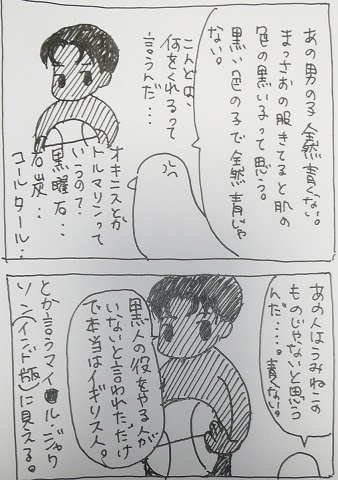 あの男の子全然青くない。
まっさおの服きてると肌の
色の黒い子って思う。
黒い色の子で全然青じゃ
ない。
こんどは、
何をくれるって
言うんだ…
オキニスとか
トルマリンって
いうの?
黒曜石…
石炭…
コールタール…
あの人はうみねこの
ものじゃないと思う
んだ…。青くない。
黒人の役をやる人が
いないと言われただけ
で本当はイギリス人。
とか言うマイ ル・ジャク
ソン(インド版)に見える。